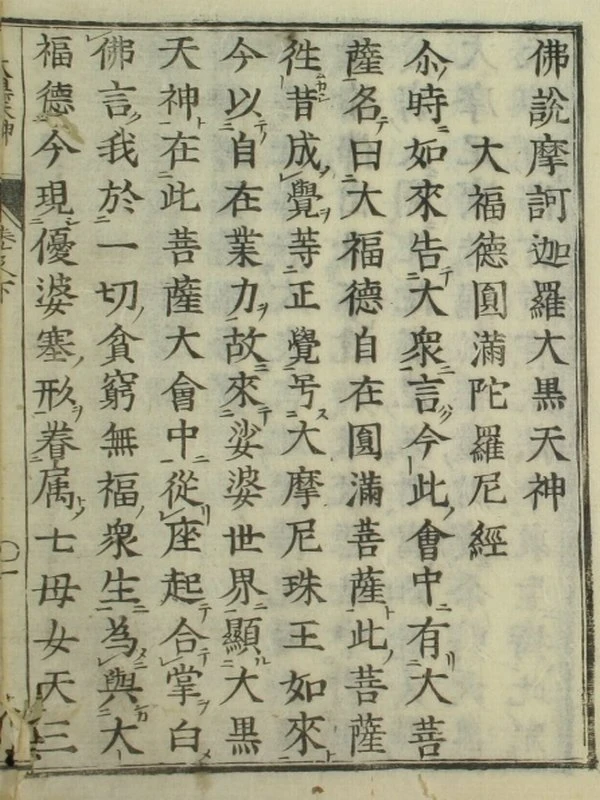 佛說摩訶迦羅大黒天神
大福德圓滿陀羅尼經
尒時如來告大衆言今此會中有大菩
薩名曰大福德自在圓滿菩薩此菩薩
徃昔成覺等正覺号大摩尼珠王如來
今以自在業力故來娑婆世界顯大黒
天神在此菩薩大會中從座起合掌白
佛言我於一切貧窮無福衆生為與大
福德今現優婆塞形眷属七母女天三